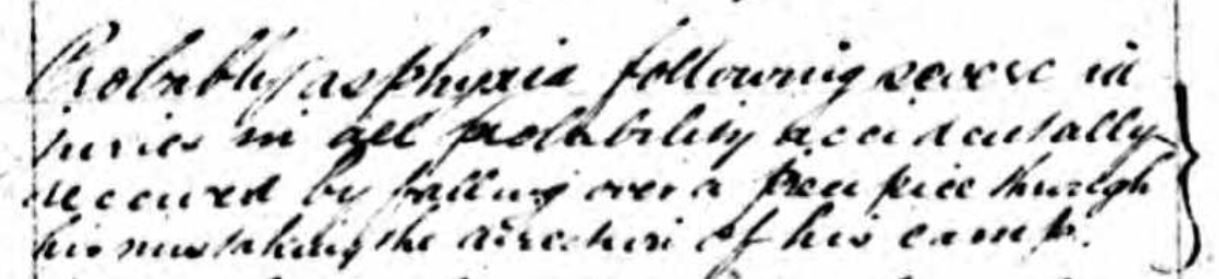 Probably asphyxia following severe in
juries in all probability accidentally
received by falling over a precipice through
his mistaking the direction of his camp.